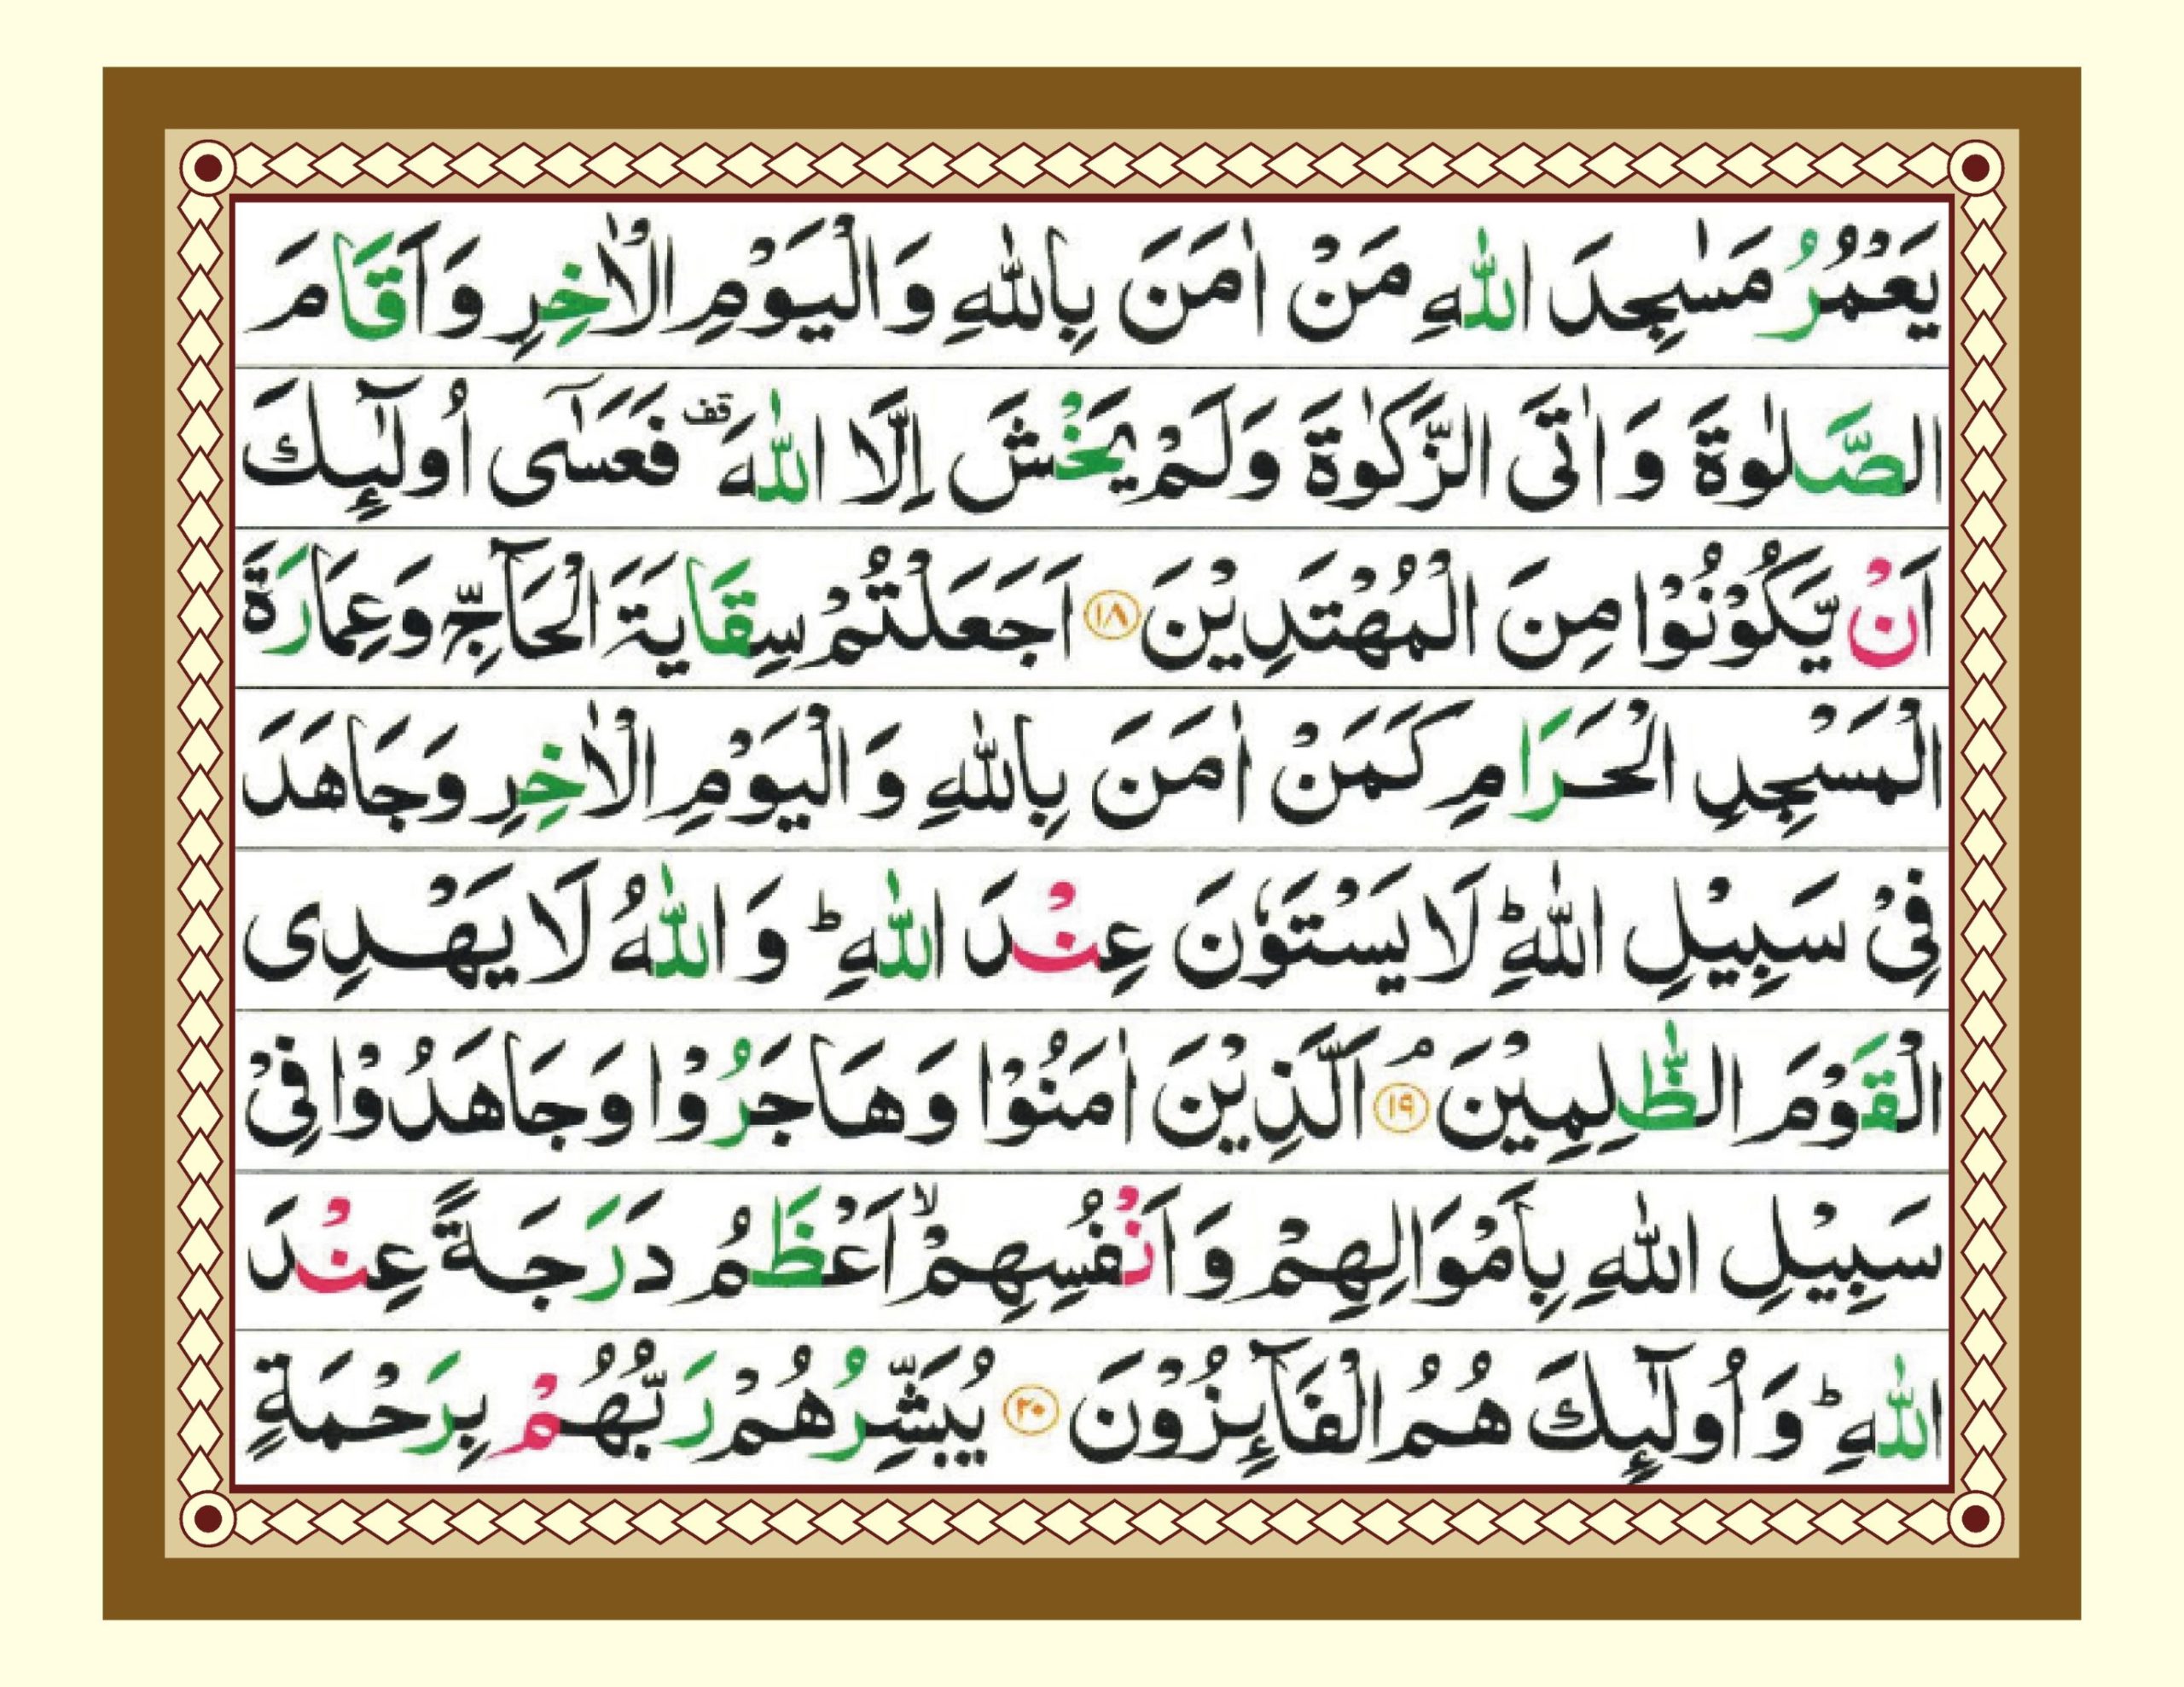 يَعْمُرُ مَسٰجِدَ اللّٰهِ مَنْ اٰمَنَ بِاللّٰهِ وَالْيَوْمِ الْاٰخِرِ وَاَقَامَ
الصَّلٰوةَ وَاٰتَى الزَّكٰوةَ وَلَمْ يَخْشَ اِلَّا اللّٰهَ ۛقف فَعَسٰٓى اُولٰٓئِكَ
اَنْ يَّكُوْنُوْا مِنَ الْمُهْتَدِيْنَ ۝۱۸ اَجَعَلْتُمْ سِقَايَةَ الْحَآجِّ وَعِمَارَةَ
الْمَسْجِدِ الْحَرَامِ كَمَنْ اٰمَنَ بِاللّٰهِ وَالْيَوْمِ الْاٰخِرِ وَجَاهَدَ
فِىْ سَبِيْلِ اللّٰهِ ؕ لَا يَسْتَوٗنَ عِنْدَ اللّٰهِ ؕ وَاللّٰهُ لَا يَهْدِى
الْقَوْمَ الظّٰلِمِيْنَ ۘ ۝۱۹ اَلَّذِيْنَ اٰمَنُوْا وَهَاجَرُوْا وَجَاهَدُوْا فِىْ
سَبِيْلِ اللّٰهِ بِاَمْوَالِهِمْ وَاَنْفُسِهِمْ ۙ اَعْظَمُ دَرَجَةً عِنْدَ
اللّٰهِ ؕ وَاُولٰٓئِكَ هُمُ الْفَآئِزُوْنَ ۝۲۰ يُبَشِّرُهُمْ رَبُّهُمْ بِرَحْمَةٍ